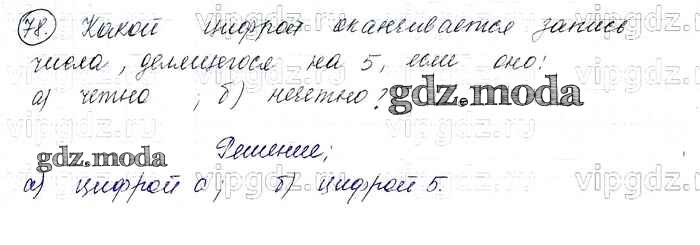 78. Какой цифрой оканчивается запись
vipgdz.ru
числа, делящегося на 5, если оно:
а) четно ; б) нечетно?
gdz.moda
vipgdz.ru
Решение;
gdz.moda
а) цифрой 0; б) цифрой 5.
vipgdz.ru